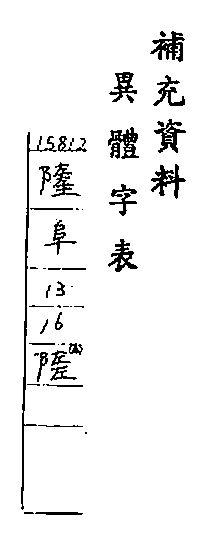 補充資料
異體字表
15812
阜
13
16
隓